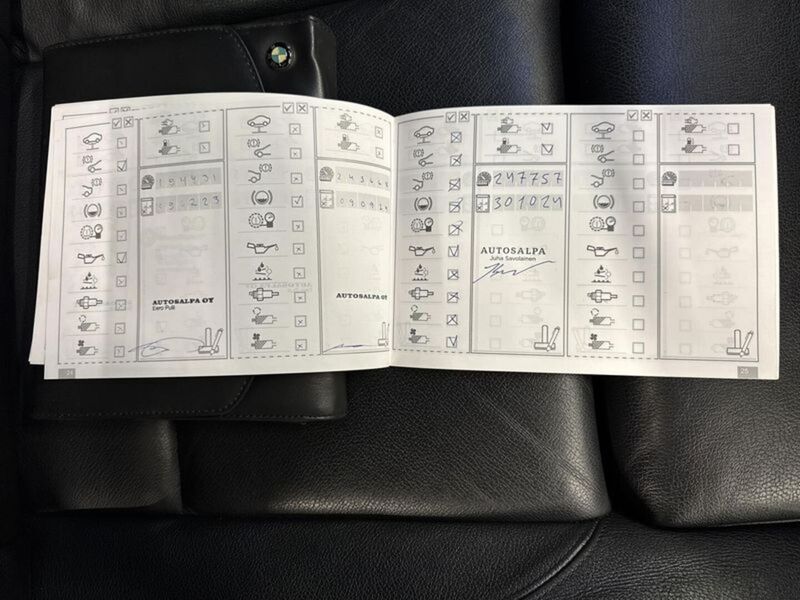 BMW
194431
AUTOSALPA OY
Eero Pulli
24
AUTOSALPA OY
247757
301024
AUTOSALPA
Juha Savolainen
25